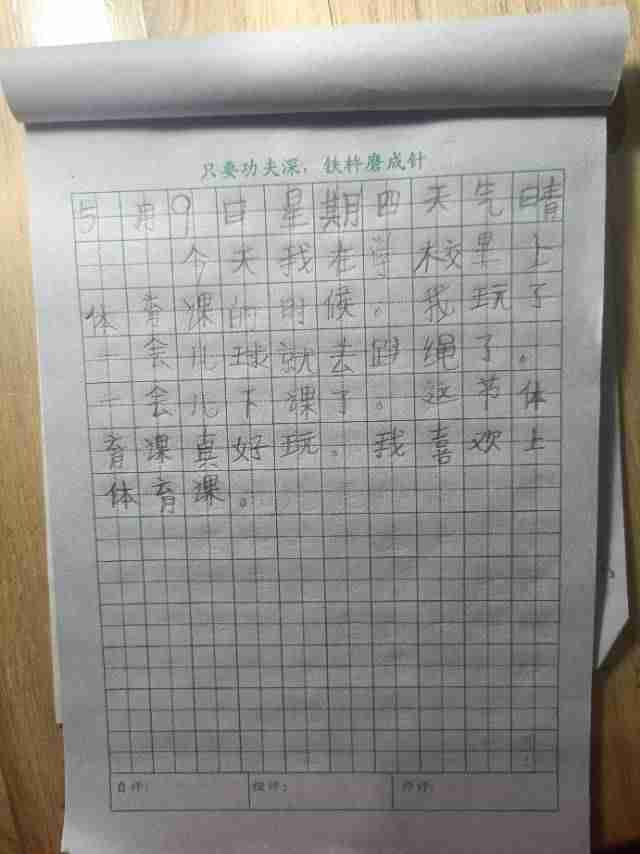 只要功夫深，铁杵磨成针
5月9日星期四天气晴
今天我在学校里上
体育课的时候。我玩了
一会儿球就去跳绳了。
一会儿下课了。这节体
育课真好玩。我喜欢上
体育课。
自评： 组评： 师评：